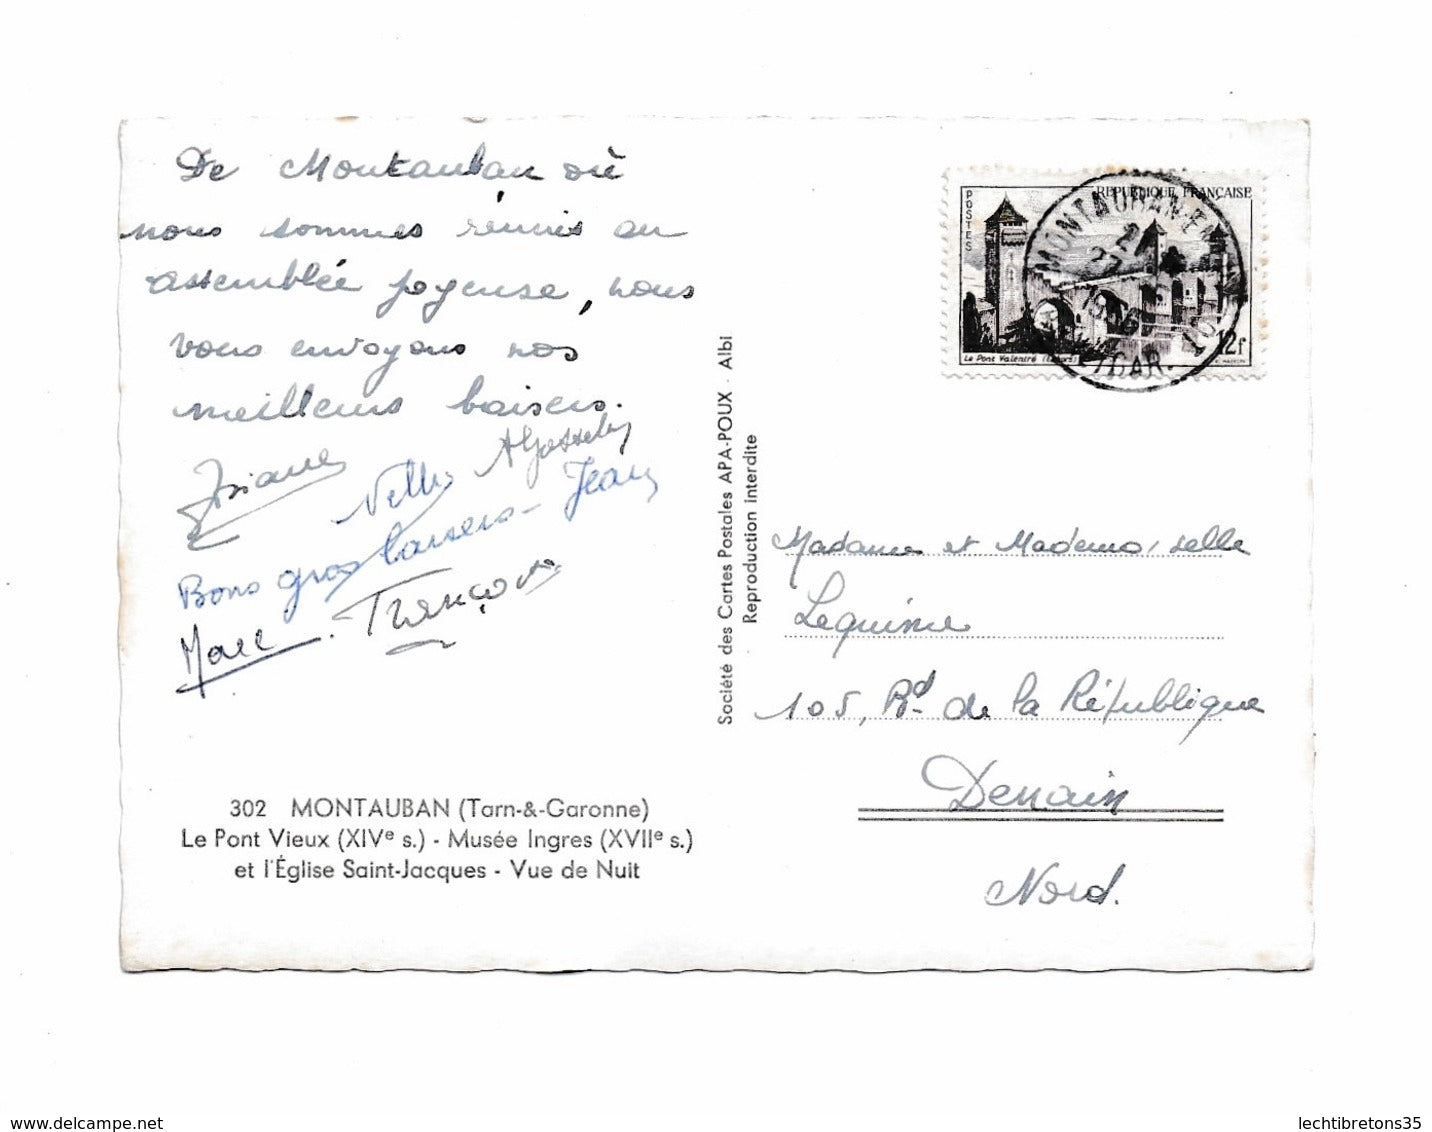 De Montauban où
nous sommes réunis en
assemblée joyeuse, nous
vous envoyons nos
meilleurs baisers.
Josiane
Nelly AGosselin
Bons gros baisers - Jean
Marc - François
302 MONTAUBAN (Tarn-&-Garonne)
Le Pont Vieux (XIVe s.) - Musée Ingres (XVIIe s.)
et l'Église Saint-Jacques - Vue de Nuit
Société des Cartes Postales APA-POUX - Albi
Reproduction interdite
POSTES
REPUBLIQUE FRANÇAISE
Le Pont Valentré (Cahors)
12f
MONTAUBAN
1956
Madame et Mademoiselle
Lequime
105, Bd de la République
Denain
Nord.
lechtibretons35